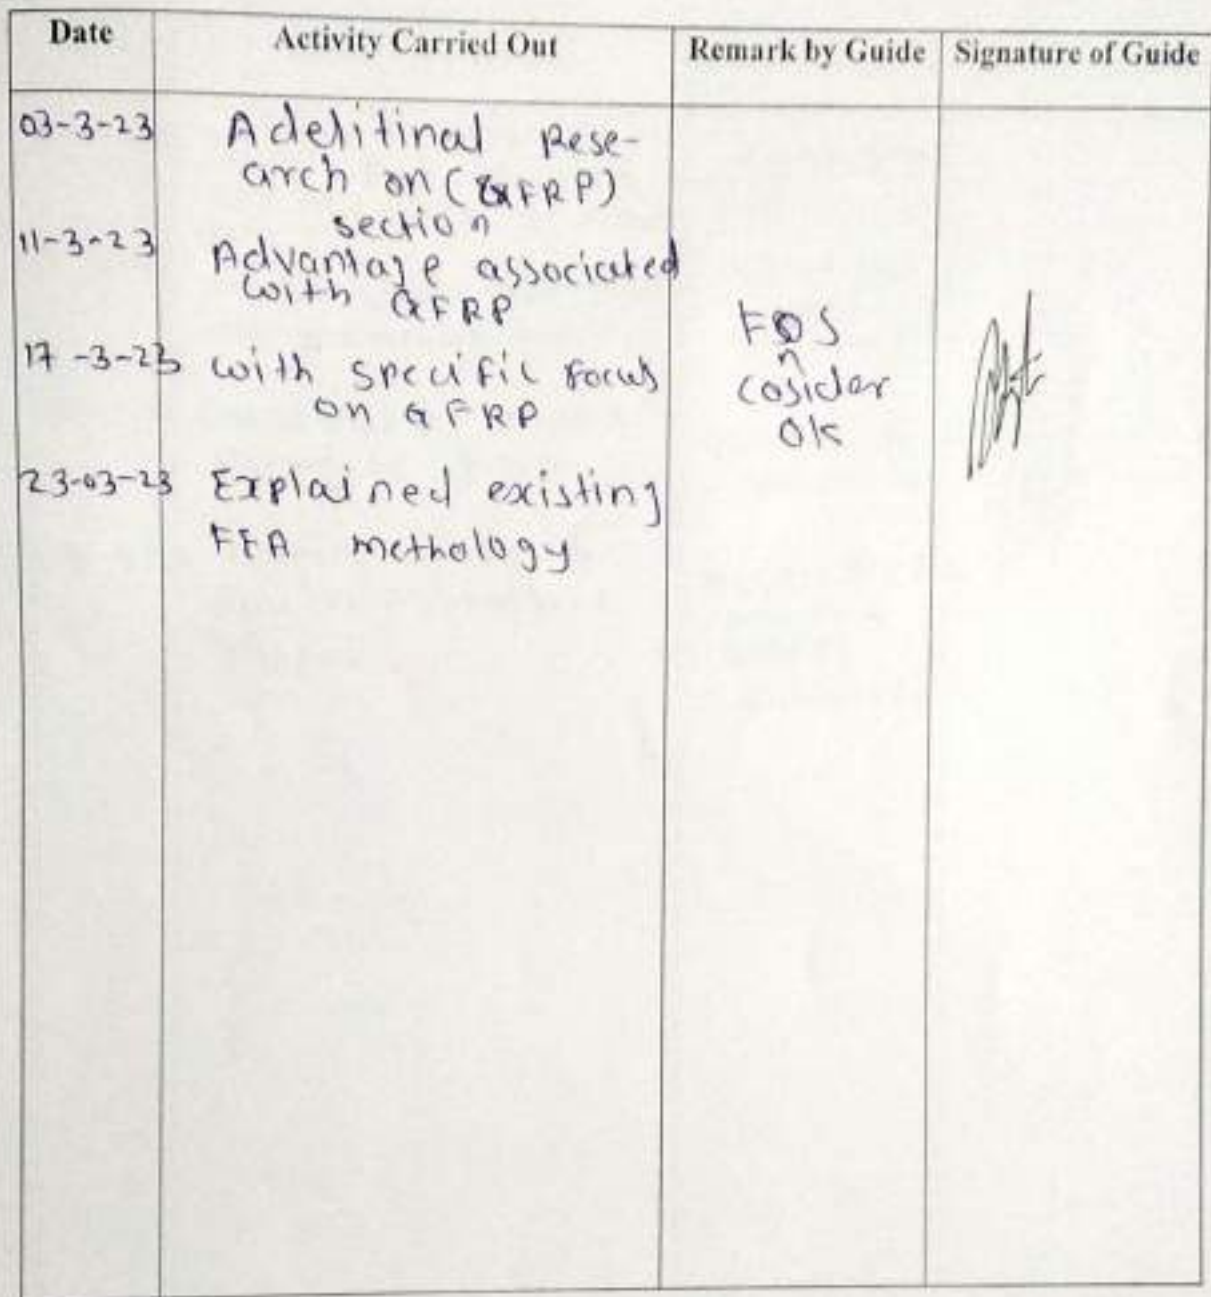 Date Activity Carried Out Remark by Guide Signature of Guide
03-3-23 Adelitinal Rese-
arch on (GFRP)
section
11-3-23 Advantage associated
with GFRP
17-3-23 with specific focus
on GFRP
FOS
n
cosider
ok
23-03-23 Explained existing
FEA methology